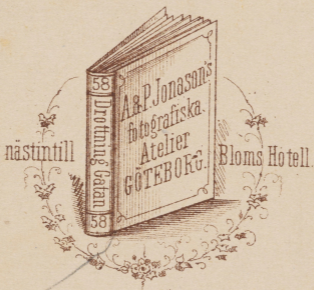 58
Drottning Gatan
58
A&P. Jonason's
fotografiska.
Atelier
GÖTEBORG.
nästintill
Bloms Hôtell.